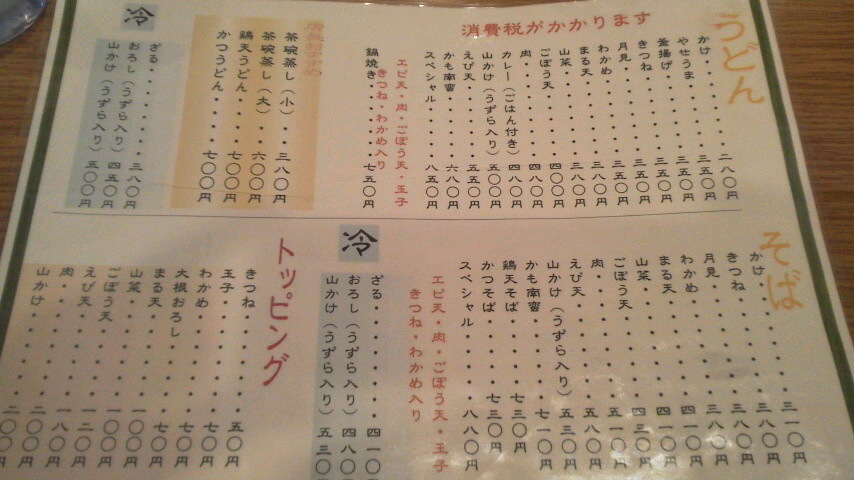 うどん
消費税がかかります
かけ・・・・・・・二八〇円
やせうま・・・・・三五〇円
釜揚げ・・・・・・三五〇円
きつね・・・・・・三五〇円
月見・・・・・・・三五〇円
わかめ・・・・・・三八〇円
まる天・・・・・・三八〇円
山菜・・・・・・・四〇〇円
ごぼう天・・・・・四八〇円
肉・・・・・・・・四八〇円
カレー（ごはん付き）四八〇円
山かけ（うずら入り）五〇〇円
えび天・・・・・・五五〇円
かも南蛮・・・・・六八〇円
スペシャル・・・・八五〇円
エビ天・肉・ごぼう天・玉子
きつね・わかめ入り
鍋焼き・・・・・・七五〇円
店長おすすめ
茶碗蒸し（小）・・三八〇円
茶碗蒸し（大）・・六〇〇円
鶏天うどん・・・・七〇〇円
かつうどん・・・・七〇〇円
冷
ざる・・・・・・・三八〇円
おろし（うずら入り）四五〇円
山かけ（うずら入り）五〇〇円
そば
かけ・・・・・・・三一〇円
きつね・・・・・・三八〇円
月見・・・・・・・三八〇円
わかめ・・・・・・四一〇円
まる天・・・・・・四一〇円
山菜・・・・・・・四三〇円
ごぼう天・・・・・五一〇円
肉・・・・・・・・
えび天・・・・・・五八〇円
山かけ（うずら入り）五三〇円
かも南蛮・・・・・七一〇円
鶏天そば・・・・・七三〇円
かつそば・・・・・七三〇円
スペシャル・・・・八八〇円
エビ天・肉・ごぼう天・玉子
きつね・わかめ入り
冷
ざる・・・・・・・四一〇
おろし（うずら入り）四八〇
山かけ（うずら入り）五三〇
トッピング
きつね・・・・・・
玉子・・・・・・・五〇円
わかめ・・・・・・七〇円
大根おろし・・・・
まる天・・・・・・七〇円
山菜・・・・・・・一〇〇円
ごぼう天・・・・・一〇〇円
えび天・・・・・・
肉・・・・・・・・一八〇円
山かけ・・・・・・二〇〇円